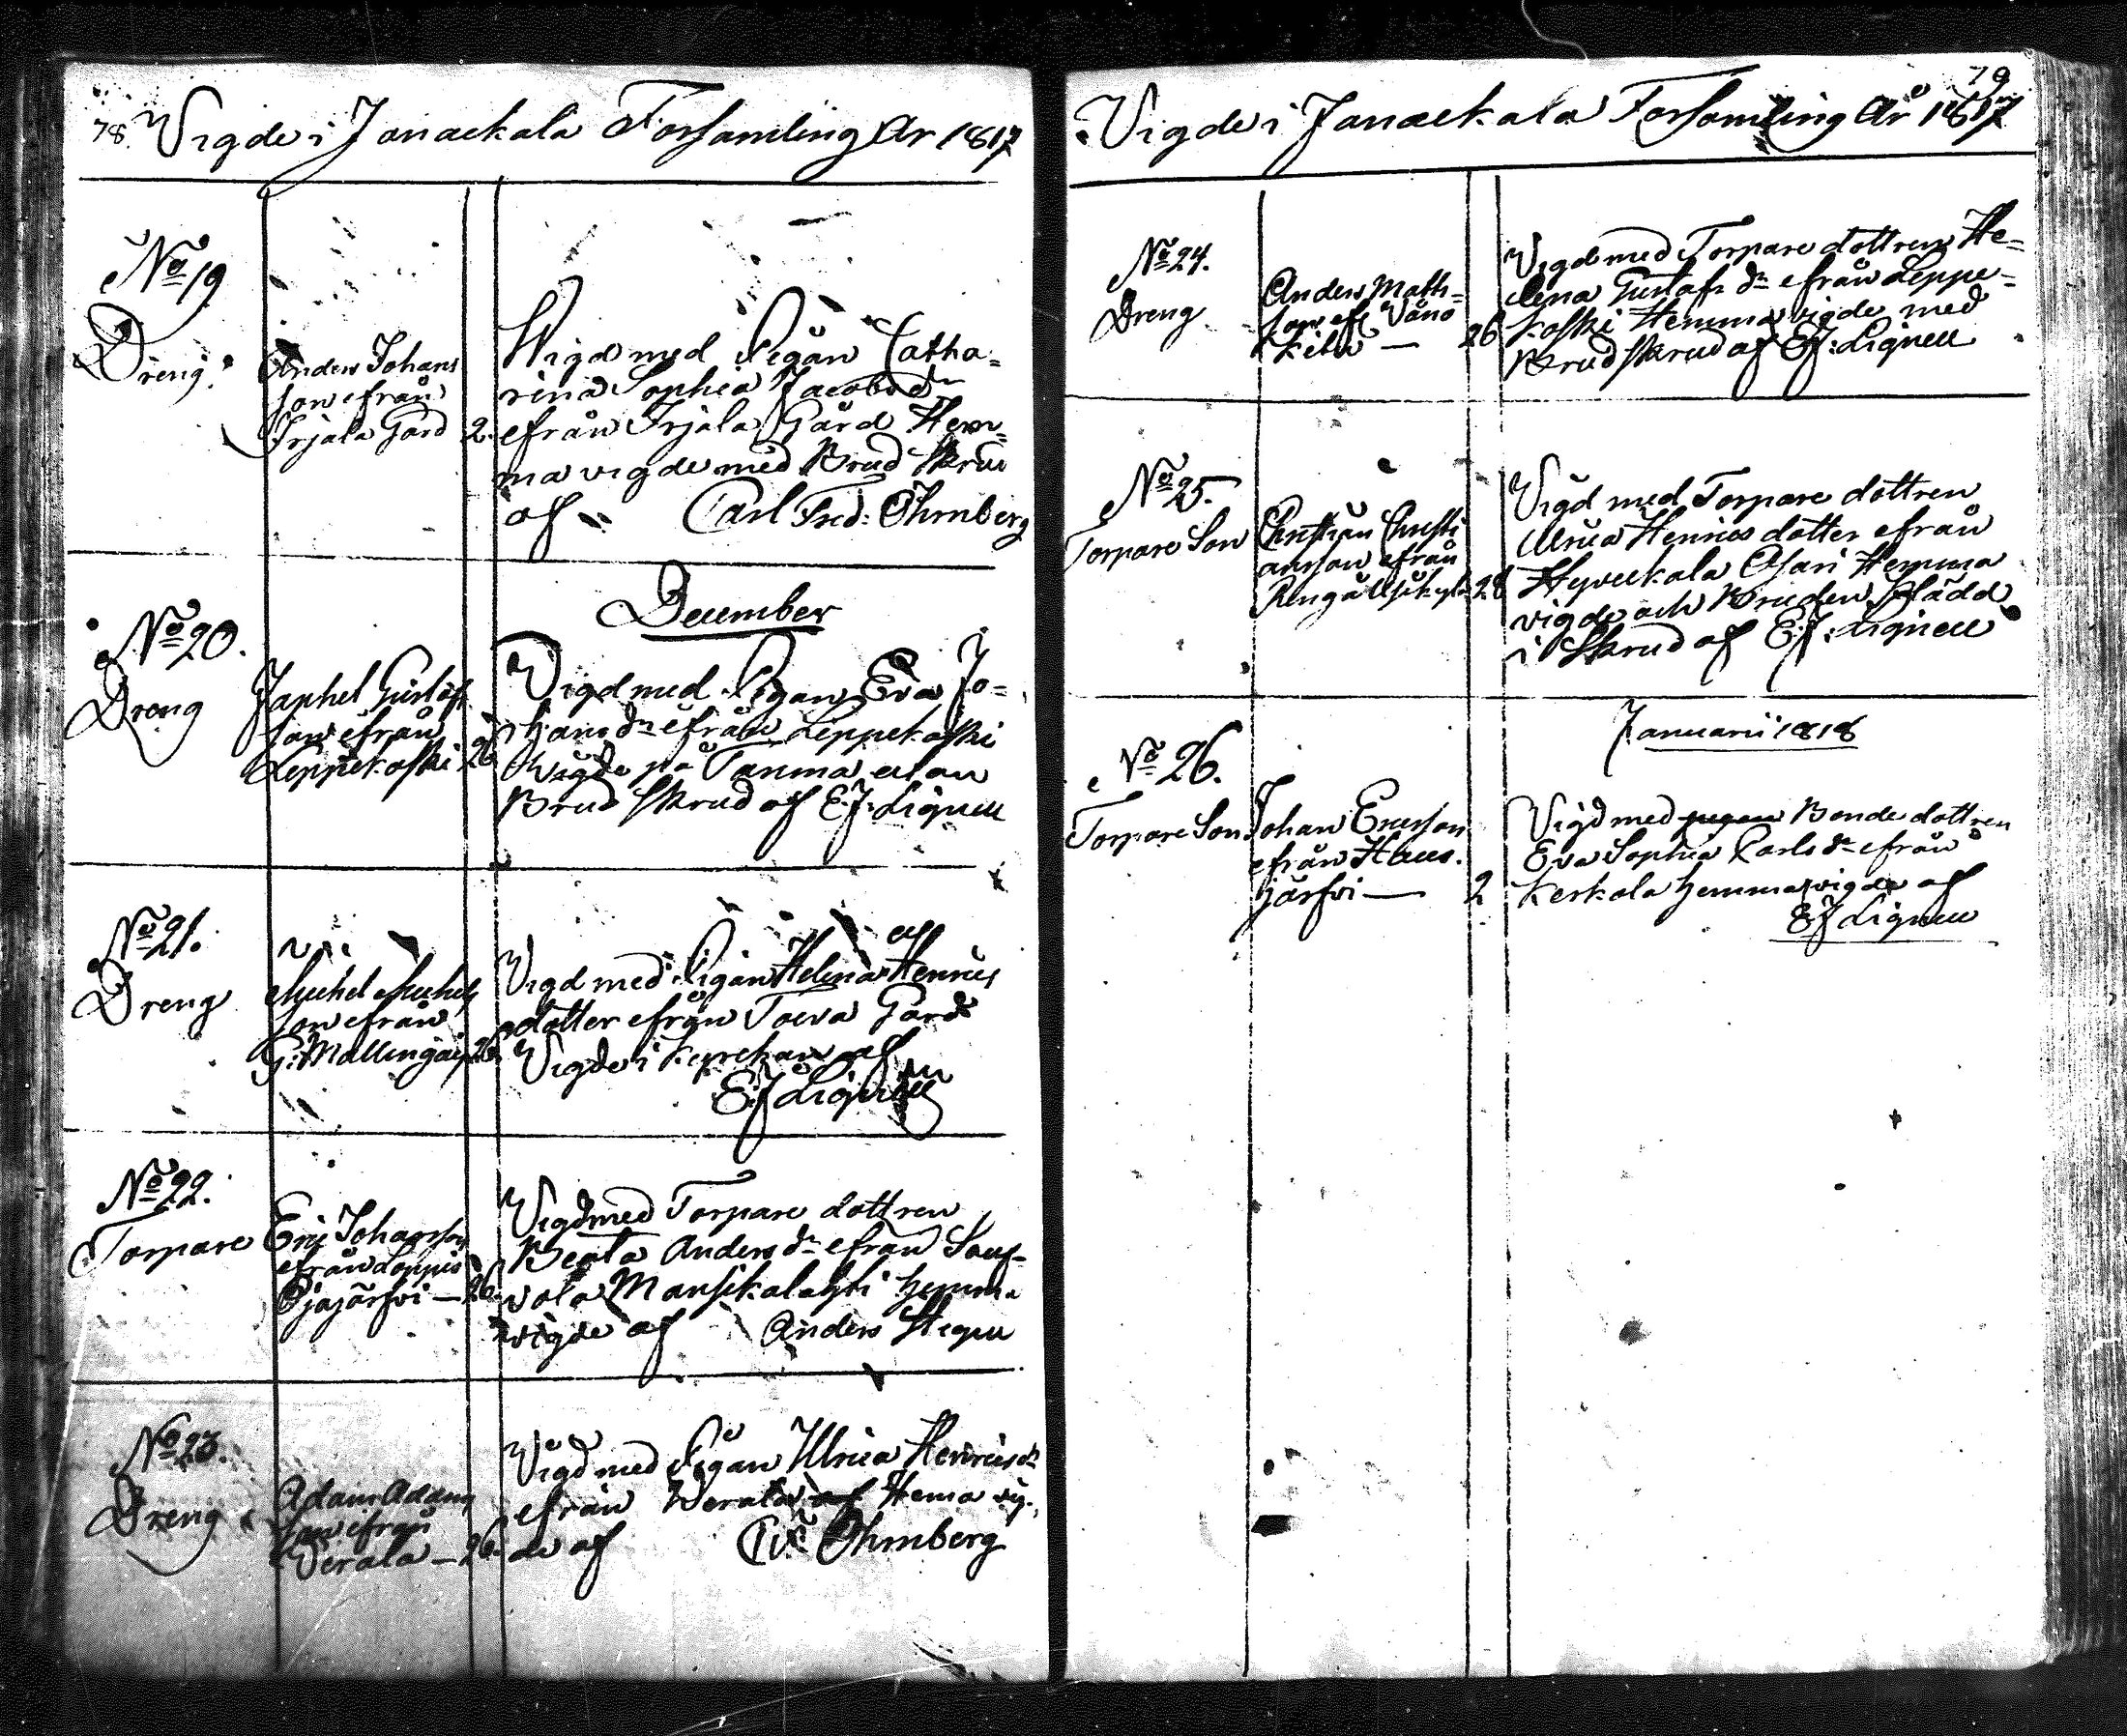 78. Vigde i Janackala Forsamling År 1817
No 19
Dreng
Anders Johans
son efrån
Irjala Gård 2.
Wigd med Pigan Catha=
rina Sophia Jacobsdr
efrån Irjala Gård Hem=
ma vigde med Brud Skrud
af Carl Fred: Öhrnberg
December
No 20.
Dreng
Japhet Gustafs
son efrån
Leppekoski 26
Vigd med Pigan Eva Jo=
hans dr efrån Leppekoski
Wigde på utan
Brud Skrud af E.J: Lignell
No 21.
Dreng
Michel Michels
son efrån
G: 26
Vigd med Pigan Helena Henrics
dotter efrån Toiva Gård
Vigde i kyrckan af
E J Lignell
No 22.
Torpare
Eric Johansson
efrån Loppis
26
Vigd med Torpare dottren
Beata Anders dr efrån
Mansikalachti hemma
vigde af Anders
No 23.
Dreng
Adam Adams
son efrån
Verala — 26
Vigd med Pigan Ulrica Henricsdr
efrån Werala af Hema vig-
de af Öhrnberg
79
Vigde i Janackala Forsamling År 1817
No 24.
Dreng
Anders Math=
son efr Väno
kela — 26
Vigd med Torpare dottren He=
lena Gustafs dr efrån Leppe=
koski Hemma vigde med
Brud skrud af E.J: Lignell
No 25.
Torpare Son
Christian Christi
ansson efrån
28
Vigd med Torpare dottren
Ulrica Henrics dotter efrån
Hyvickala Ojari Hemma
vigde och Bruden Klädd
i Skrud af E:J: Lignell
Januarii 1818
No 26.
Torpare Son
Johan Ericsson
efrån Haus-
järfvi — 2
Vigd med pigan Bonde dottren
Eva Sophia Carls dr efrån
Kerkola hemma vigde af
E J Lignell